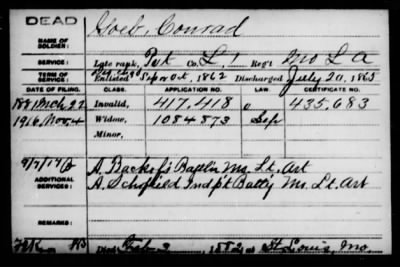 DEAD
NAME OF SOLDIER: Goeb, Conrad
SERVICE: Late rank, Pvt Co. L, 1 Reg't Mo L A
TERM OF SERVICE: Enlisted 1862 Discharged July 20, 1865
DATE OF FILING. CLASS. APPLICATION NO. LAW. CERTIFICATE NO.
Mch 22 Invalid, 417,418 435,683
1916 Nov 4 Widow, 1084,873
Minor,
ADDITIONAL SERVICES: A. Backof's Battln Mo. Lt. Art
A. Schofield Ind'p't Batt'y Mo. Lt. Art
Died Feb 3, 1882 at St Louis, Mo.